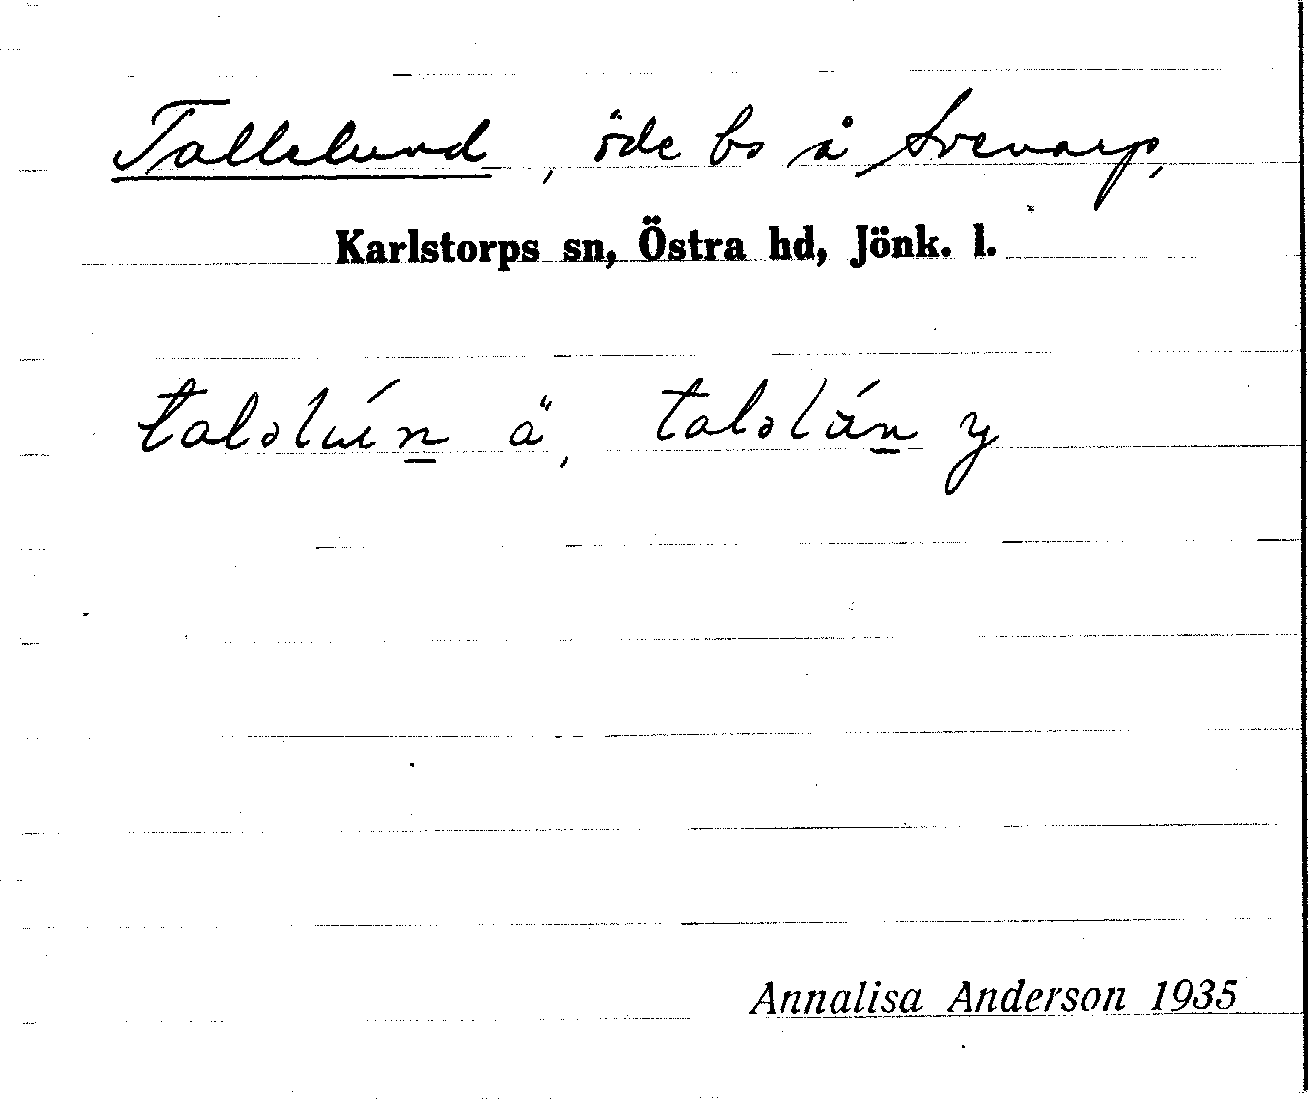 Tallelund, öde bs å Svenarp,
Karlstorps sn, Östra hd, Jönk. l.
taləlun̲ ä, taləlun̲ y
Annalisa Anderson 1935